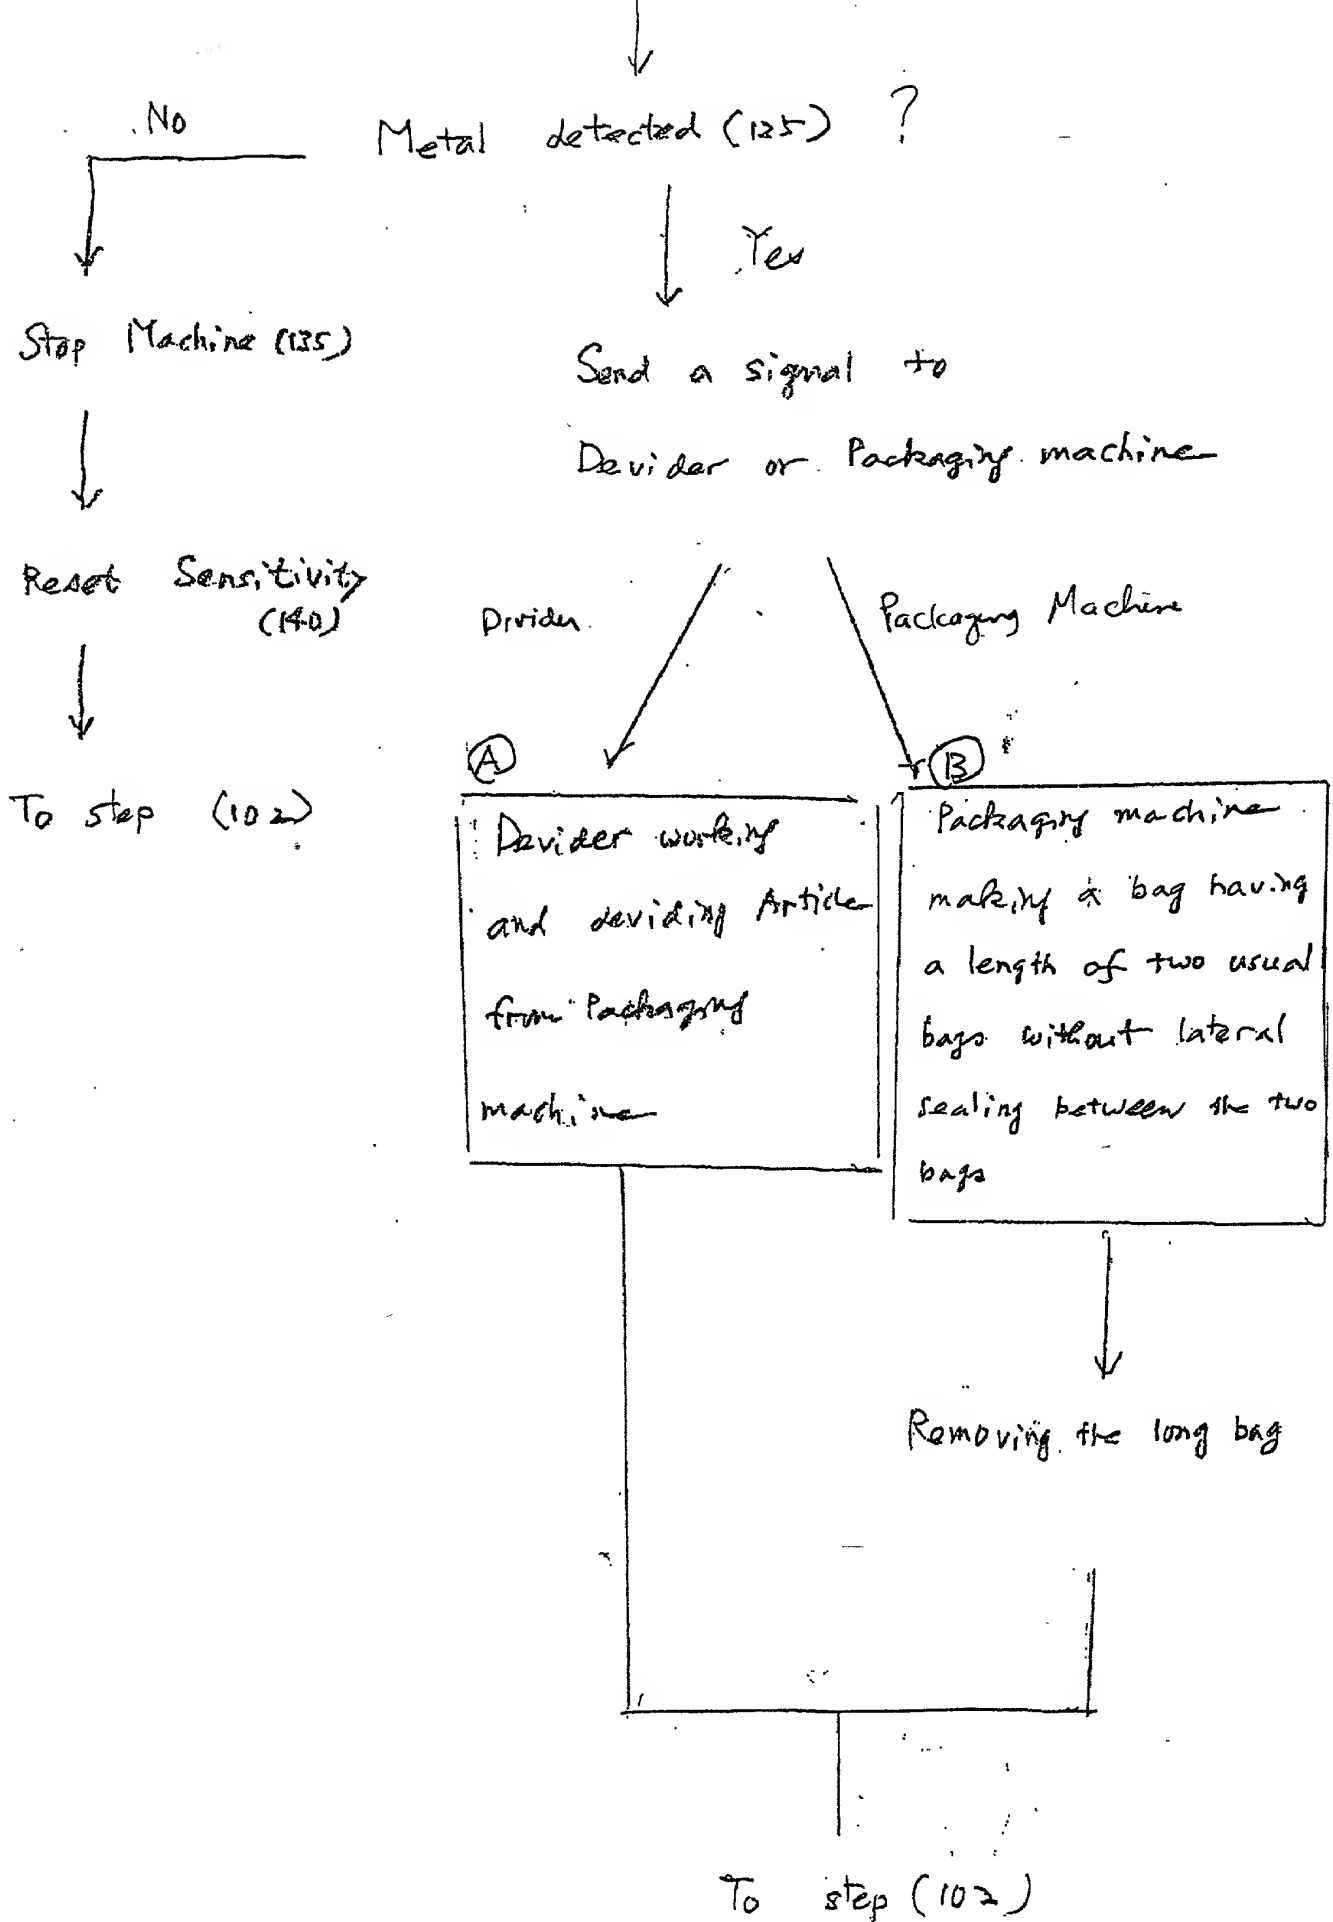 No
Metal detected (125) ?
Yes
Stop Machine (135)
Send a signal to
Devider or Packaging machine
Reset Sensitivity
(140)
Divider
Packaging Machine
To step (102)
A
Devider working
and deviding Article
from Packaging
machine
B
Packaging machine
making a bag having
a length of two usual
bags without lateral
sealing between the two
bags
Removing the long bag
To step (102)